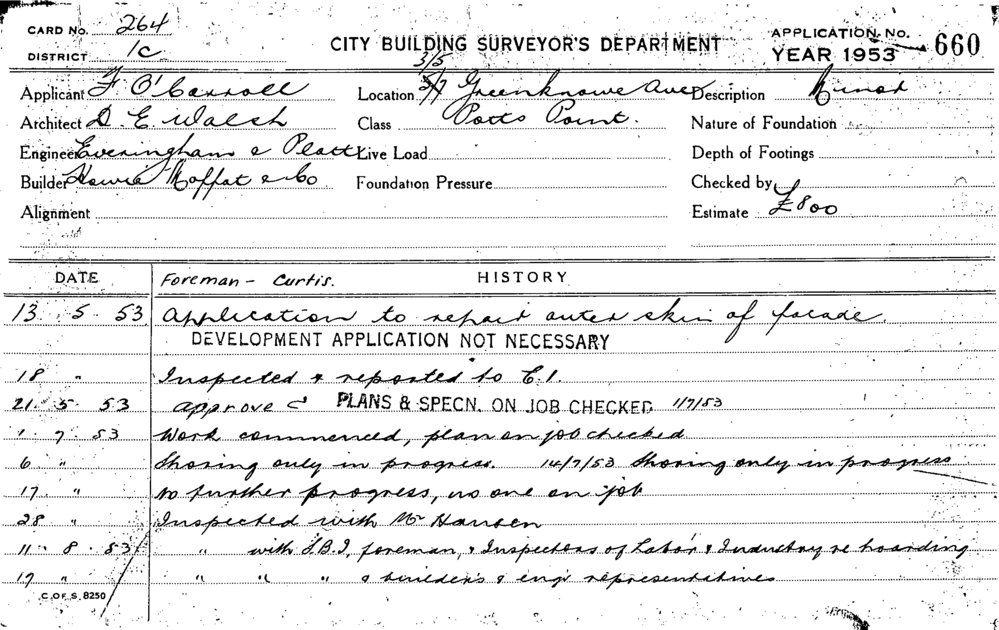 CARD No. 264
DISTRICT 1C
CITY BUILDING SURVEYOR'S DEPARTMENT
APPLICATION No. 660
YEAR 1953
3/5
Applicant F O'Carroll Location 5/7 Greenknowe Ave Description Minor
Architect D. E. Walsh Class Potts Point. Nature of Foundation
Engineer Everingham & Platt Live Load Depth of Footings
Builder Howie Moffat & Co Foundation Pressure Checked by
Alignment Estimate £800
DATE Foreman - Curtis. HISTORY
13 5 53 Application to repair outer skin of facade.
DEVELOPMENT APPLICATION NOT NECESSARY
18 " Inspected & reported to C.I.
21. 5. 53 approve PLANS & SPECN. ON JOB CHECKED 1/7/53
1 7 53 Work commenced, plan on job checked
6 " Shoring only in progress. 14/7/53 Shoring only in progress
17 " No further progress, no one on job
28 " Inspected with Mr Hansen
11. 8. 53 " with D.B.I, foreman, & Inspectors of Labor & Industry re hoarding
17 " " " " & builders & engr representatives
C. OF S. 8250